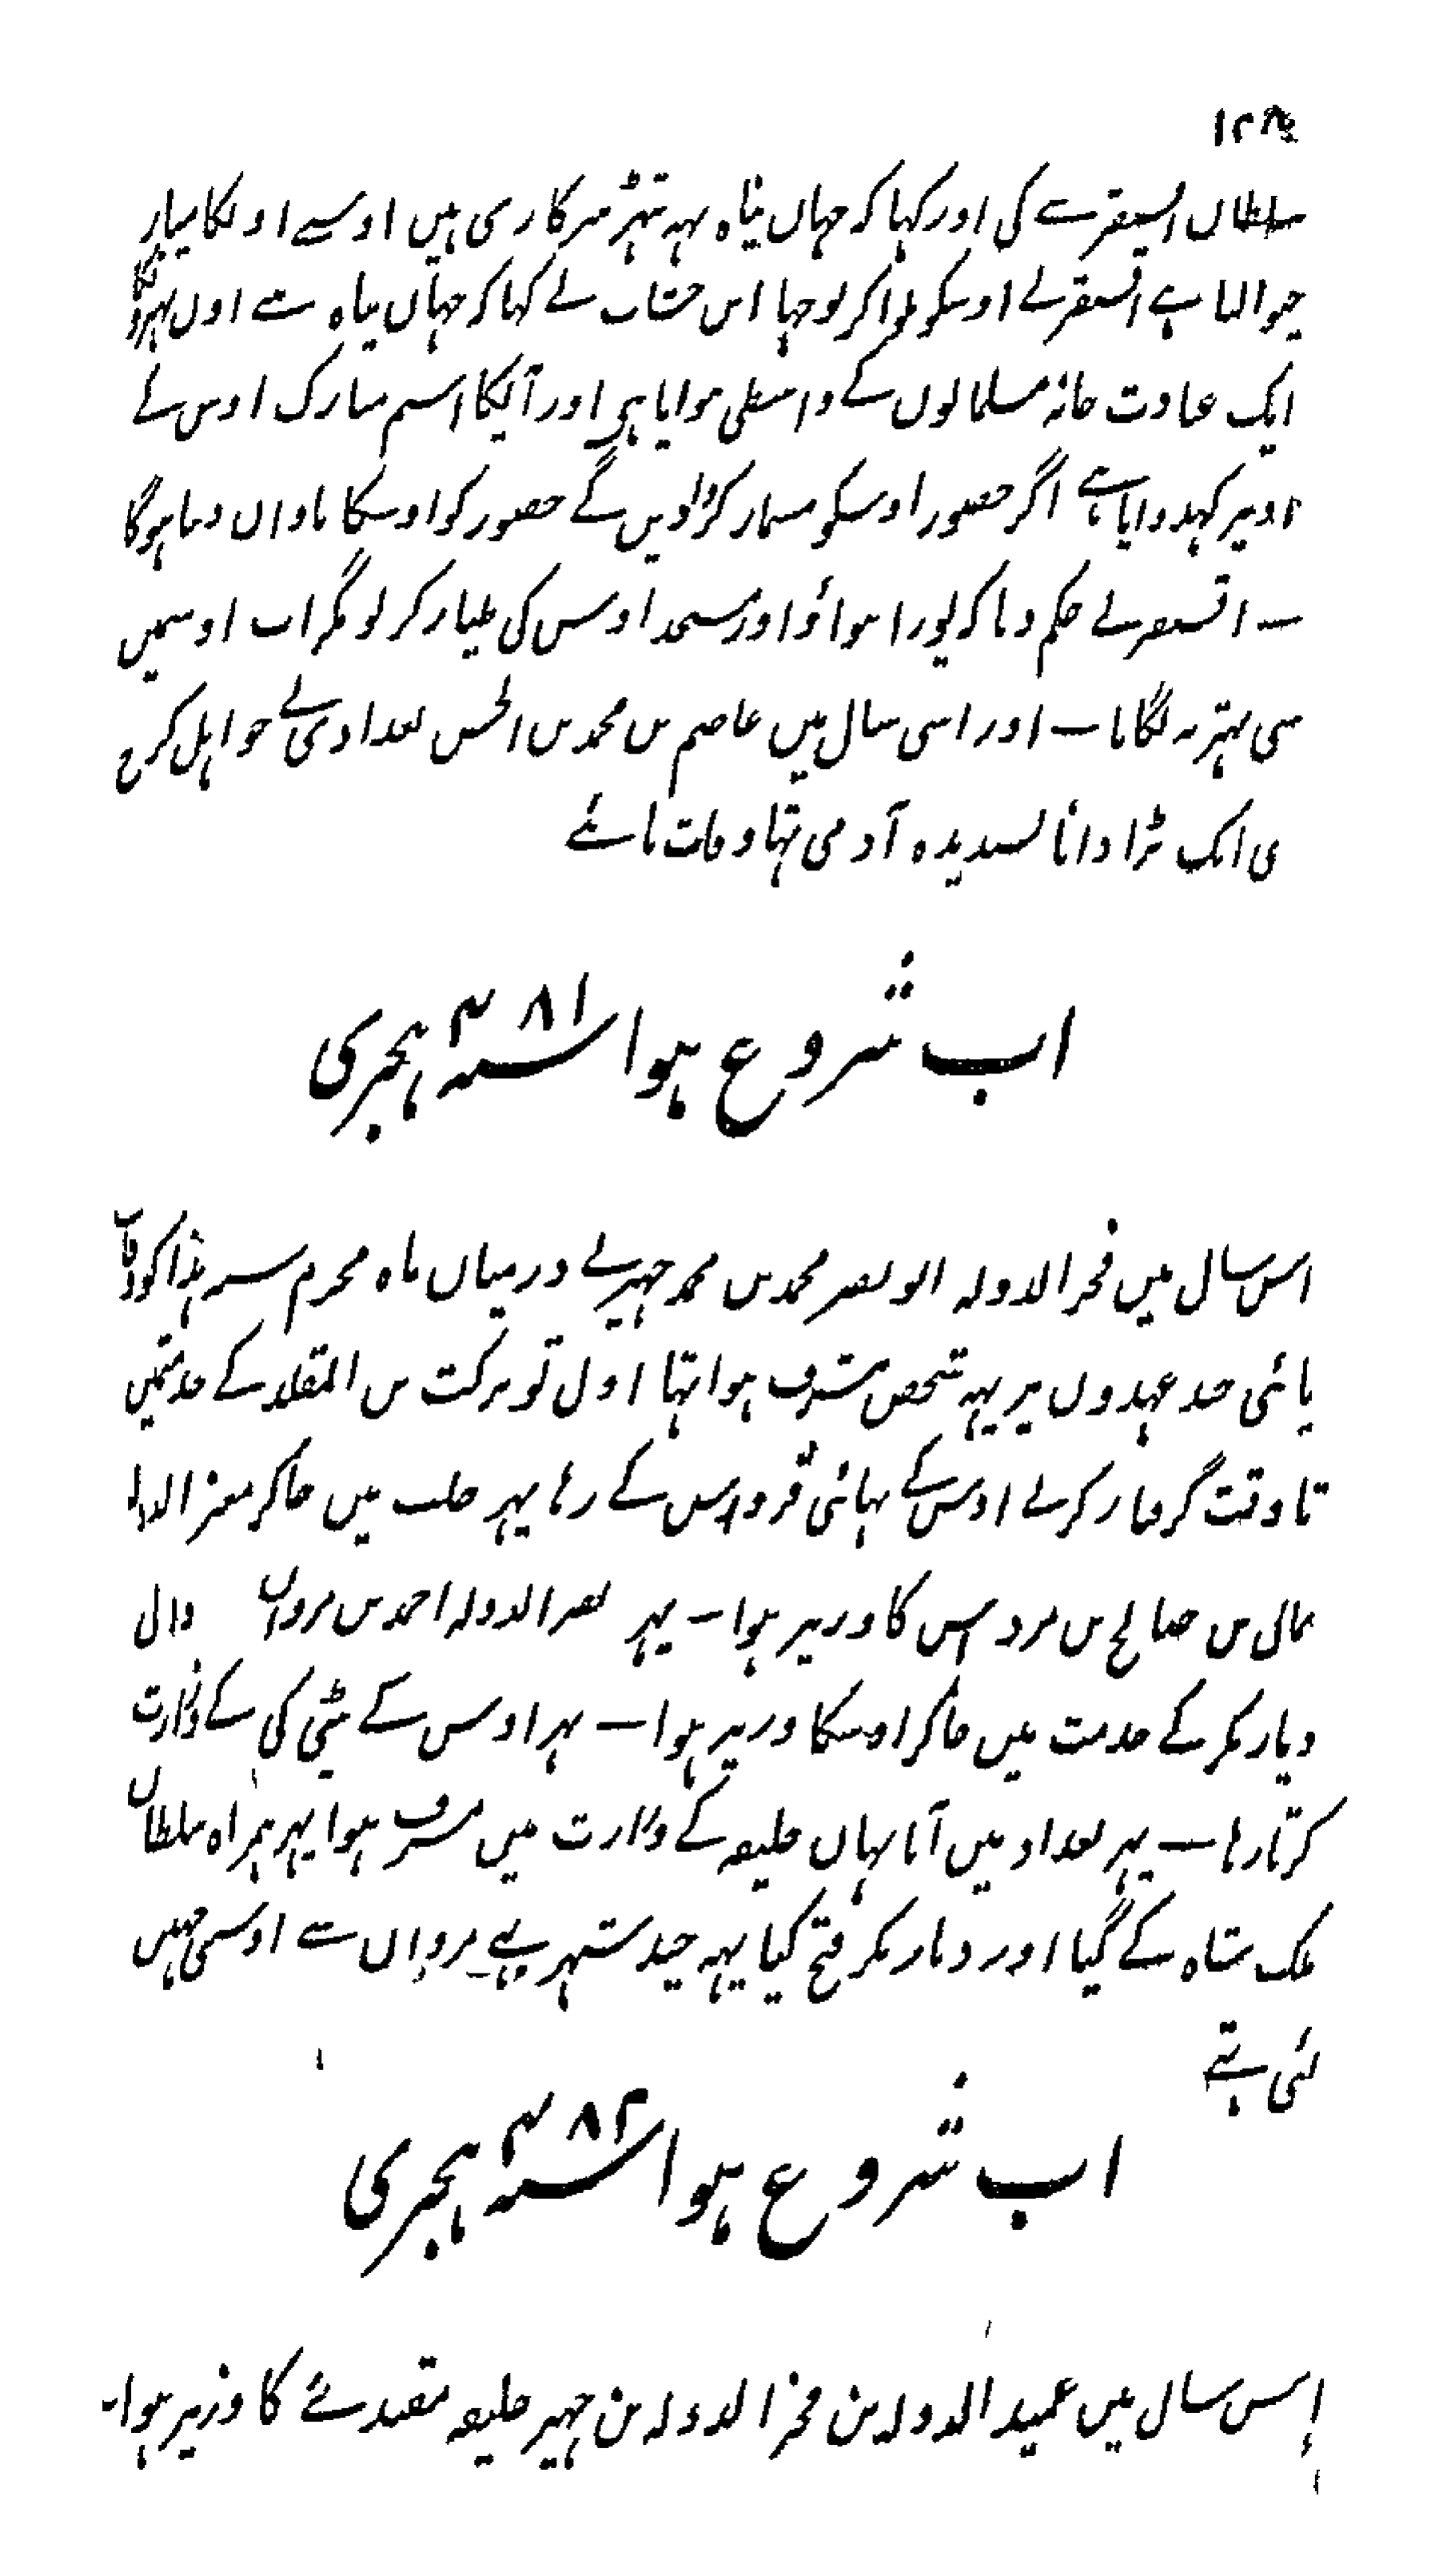 سلطان اقسنقر سے کی اور کہا کہ جہاں پناہ یہہ پتہر سرکاری ہیں اوسے اونکا
ہے اقسنقر نے اوسکو بلوا کر پوچہا اس خشاب نے کہا کہ جہاں پناہ سے اول
ایک عبادت خانہ مسلمانوں کے واسطی بنوایا ہی اور آپکا اسم مبارک اوس کے
اوپر کہدوایا ہے اگر حضور اوسکو مسمار کڑوادیں گے حضور کو اوسکا تاوان دینا ہوگا
۔ اقسنقر نے حکم دیا کہ پورا بنواؤ اور مسجد اوس کی طیار کر لو مگر اب اوسمیں
سی پتہر نہ لگانا ۔ اور اسی سال میں عاصم بن محمد بن الحسن بغدادی نے جو اہل کرخ
ی ایک بڑا دانا پسندیدہ آدمی تہا وفات پائے
اب شروع ہوا سنہ ۴۸۱ ہجری
اس سال میں فخر الدولہ ابو نصر محمد بن محمد جہیر نے درمیان ماہ محرم سنہ ہذا کو وفات
پائی چند عہدوں پر یہہ شخص مشرف ہوا تہا اول تو برکت بن المقلد کے خدمتمیں
تا وقت گرفتار کرنے اوس کے بہائی قرواس کے رہا پہر حلب میں جاکر معز الدولہ
ثمال بن صالح بن مرداس کا وزیر ہوا ۔ پہر نصر الدولہ احمد بن مروان والی
دیار بکر کے خدمت میں جاکر اوسکا وزیر ہوا ۔ پہر اوس کے بیٹی کی کے وزارت
کرتا رہا ۔ پہر بغداد میں آیا یہاں خلیفہ کے وزارت میں مشرف ہوا پہر ہمراہ سلطان
ملک شاہ کے گیا اور دیار بکر فتح کیا یہہ چند شہر بنے مروان سے اوسی نہیں
لئی تہے
اب شروع ہوا سنہ ۴۸۲ ہجری
اس سال میں عمید الدولہ بن فخر الدولہ بن جہیر خلیفہ مقتدے کا وزیر ہوا۔